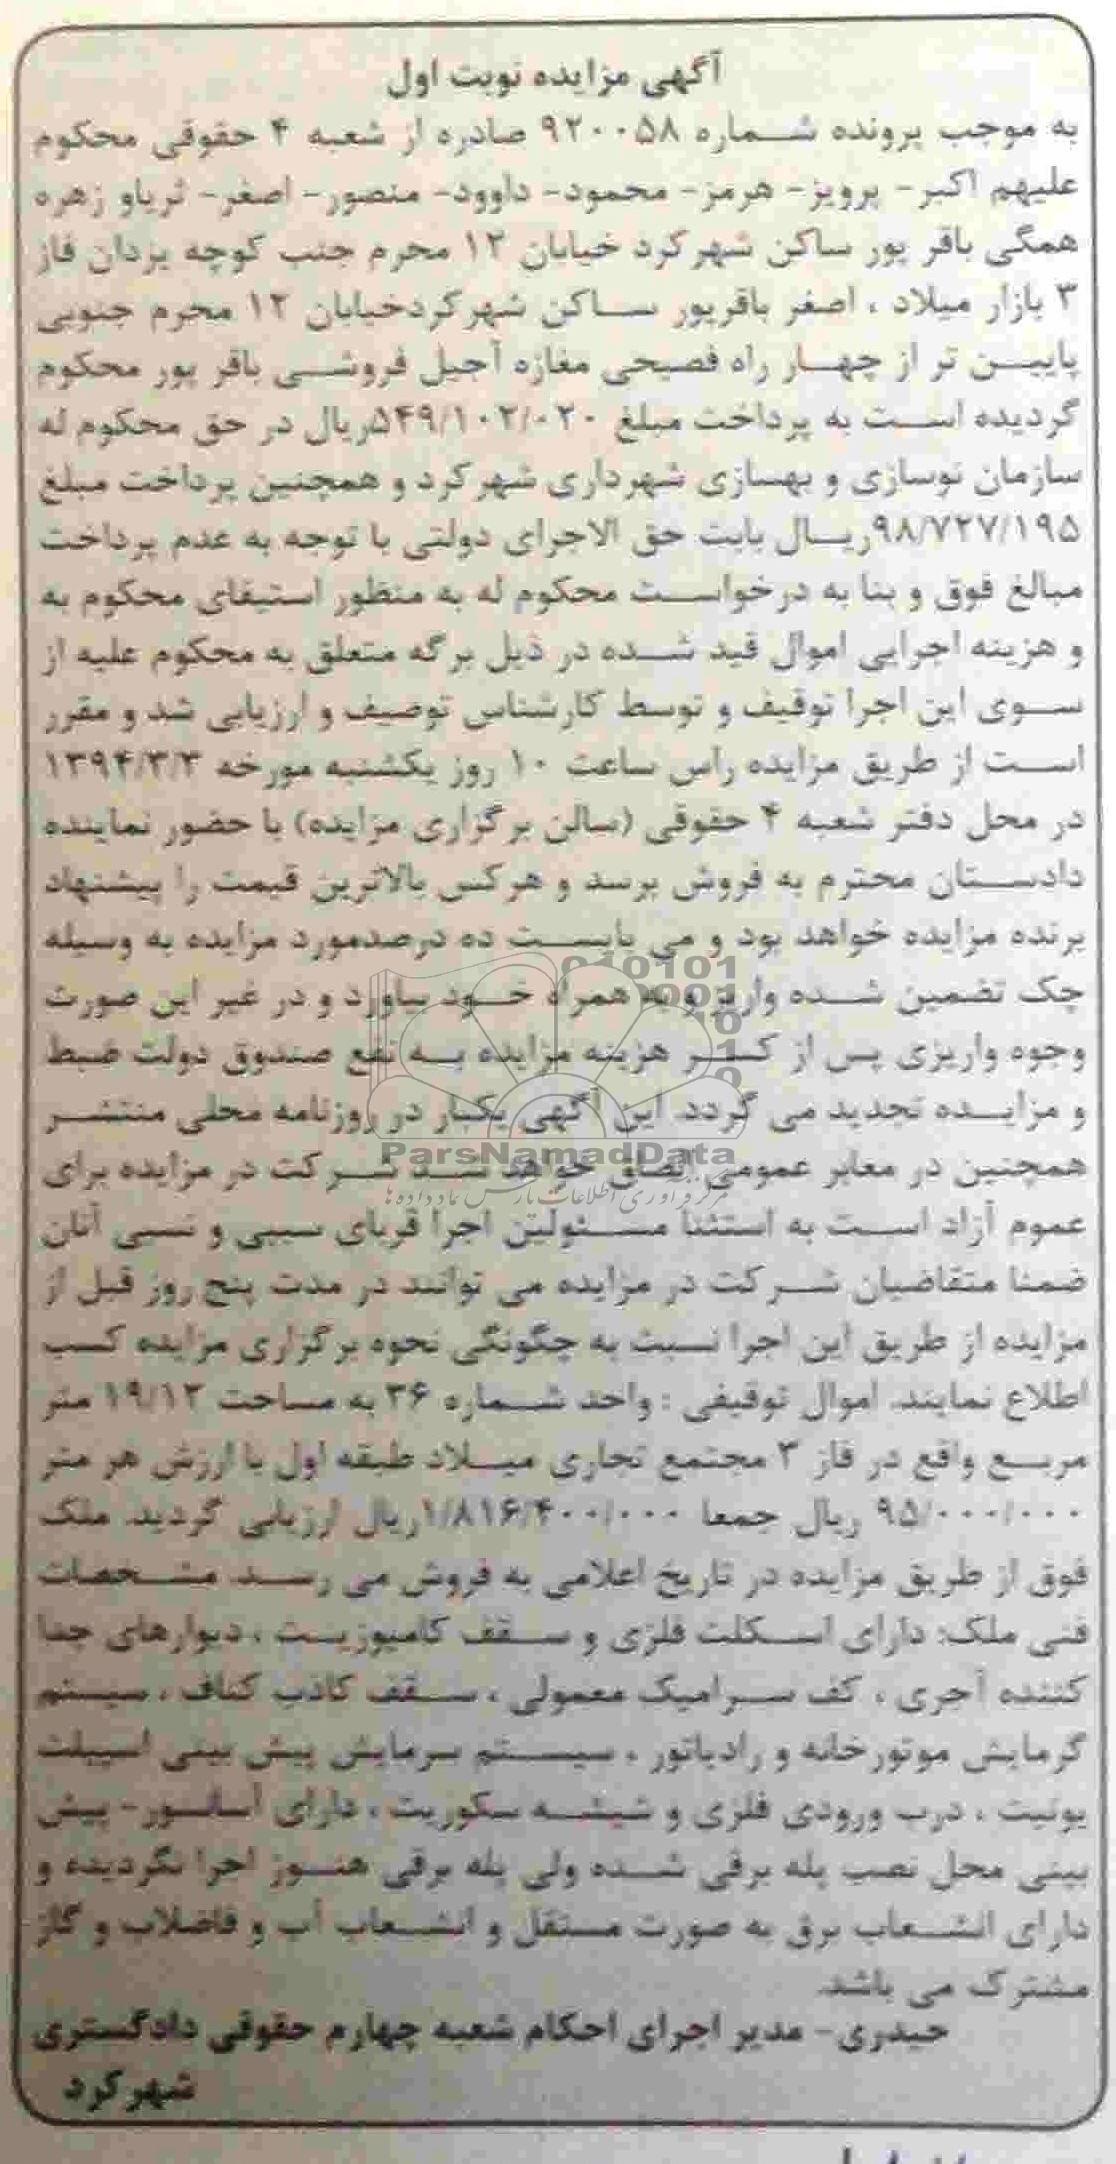 آگهی مزایده نوبت اول
به موجب پرونده شماره ۹۲۰۰۵۸ صادره از شعبه ۴ حقوقی محکوم
علیهم اکبر- پرویز- هرمز- محمود- داوود- منصور- اصغر- ثریاو زهره
همگی باقر پور ساکن شهرکرد خیابان ۱۲ محرم جنب کوچه یزدان فاز
۳ بازار میلاد ، اصغر باقرپور ساکن شهرکردخیابان ۱۲ محرم جنوبی
پایین تر از چهار راه فصیحی مغازه آجیل فروشی باقر پور محکوم
گردیده است به پرداخت مبلغ ۵۴۹/۱۰۲/۰۲۰ریال در حق محکوم له
سازمان نوسازی و بهسازی شهرداری شهرکرد و همچنین پرداخت مبلغ
۹۸/۷۲۷/۱۹۵ریال بابت حق الاجرای دولتی با توجه به عدم پرداخت
مبالغ فوق و بنا به درخواست محکوم له به منظور استیفای محکوم به
و هزینه اجرایی اموال قید شده در ذیل برگه متعلق به محکوم علیه از
سوی این اجرا توقیف و توسط کارشناس توصیف و ارزیابی شد و مقرر
است از طریق مزایده راس ساعت ۱۰ روز یکشنبه مورخه ۱۳۹۴/۳/۳
در محل دفتر شعبه ۴ حقوقی (سالن برگزاری مزایده) با حضور نماینده
دادستان محترم به فروش برسد و هرکس بالاترین قیمت را پیشنهاد
برنده مزایده خواهد بود و می بایست ده درصدمورد مزایده به وسیله
چک تضمین شده واریز و به همراه خود بیاورد و در غیر این صورت
وجوه واریزی پس از کسر هزینه مزایده به نفع صندوق دولت ضبط
و مزایده تجدید می گردد. این آگهی یکبار در روزنامه محلی منتشر
همچنین در معابر عمومی الصاق خواهد شد شرکت در مزایده برای
عموم آزاد است به استثنا مسئولین اجرا قربای سببی و نسبی آنان
ضمنا متقاضیان شرکت در مزایده می توانند در مدت پنج روز قبل از
مزایده از طریق این اجرا نسبت به چگونگی نحوه برگزاری مزایده کسب
اطلاع نمایند. اموال توقیفی : واحد شماره ۳۶ به مساحت ۱۹/۱۲ متر
مربع واقع در فاز ۳ مجتمع تجاری میلاد طبقه اول با ارزش هر متر
۹۵/۰۰۰/۰۰۰ ریال جمعا ۱/۸۱۶/۴۰۰/۰۰۰ریال ارزیابی گردید. ملک
فوق از طریق مزایده در تاریخ اعلامی به فروش می رسد. مشخصات
فنی ملک: دارای اسکلت فلزی و سقف کامپوزیت ، دیوارهای جدا
کننده آجری ، کف سرامیک معمولی ، سقف کاذب کناف ، سیستم
گرمایش موتورخانه و رادیاتور ، سیستم سرمایش پیش بینی اسپیلت
یونیت ، درب ورودی فلزی و شیشه سکوریت ، دارای آسانسور- پیش
بینی محل نصب پله برقی شده ولی پله برقی هنوز اجرا نگردیده و
دارای انشعاب برق به صورت مستقل و انشعاب آب و فاضلاب و گاز
مشترک می باشد.
حیدری- مدیر اجرای احکام شعبه چهارم حقوقی دادگستری
شهرکرد
ParsNamadData
مرکز فرآوری اطلاعات پارس نماد داده ها